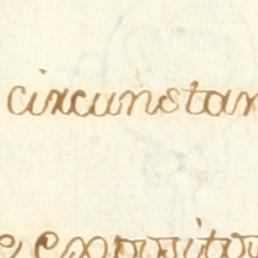 circunstan
e expositor